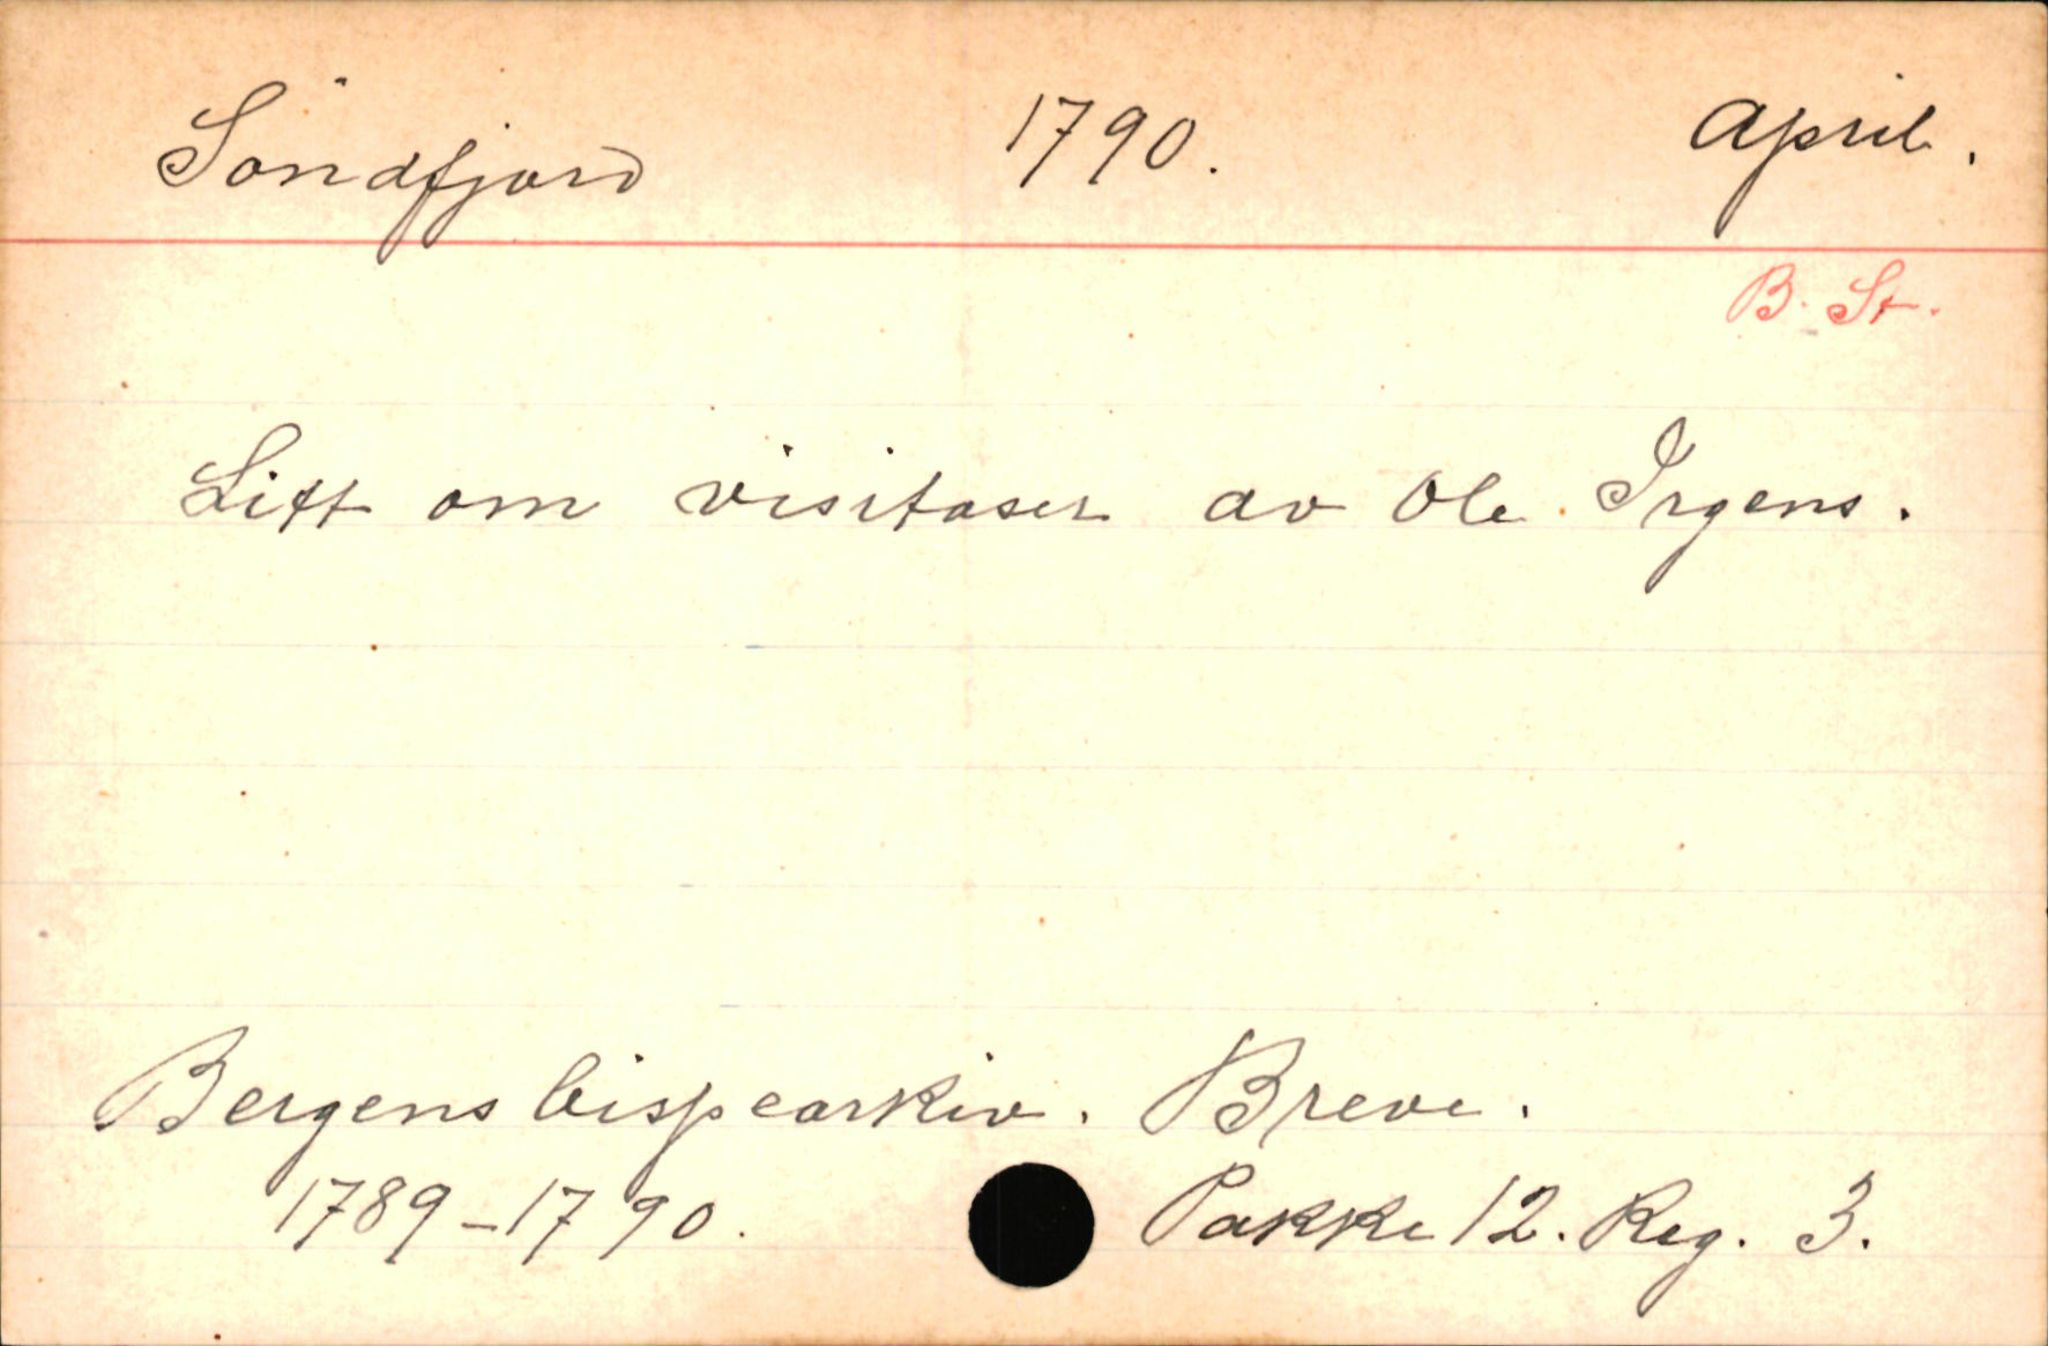 Söndfjord 1790. April.
B. St.
Litt om visitaser av Ole Irgens.
Bergens bispearkiv. Breve.
1789-1790. Pakke 12. Reg. 3.